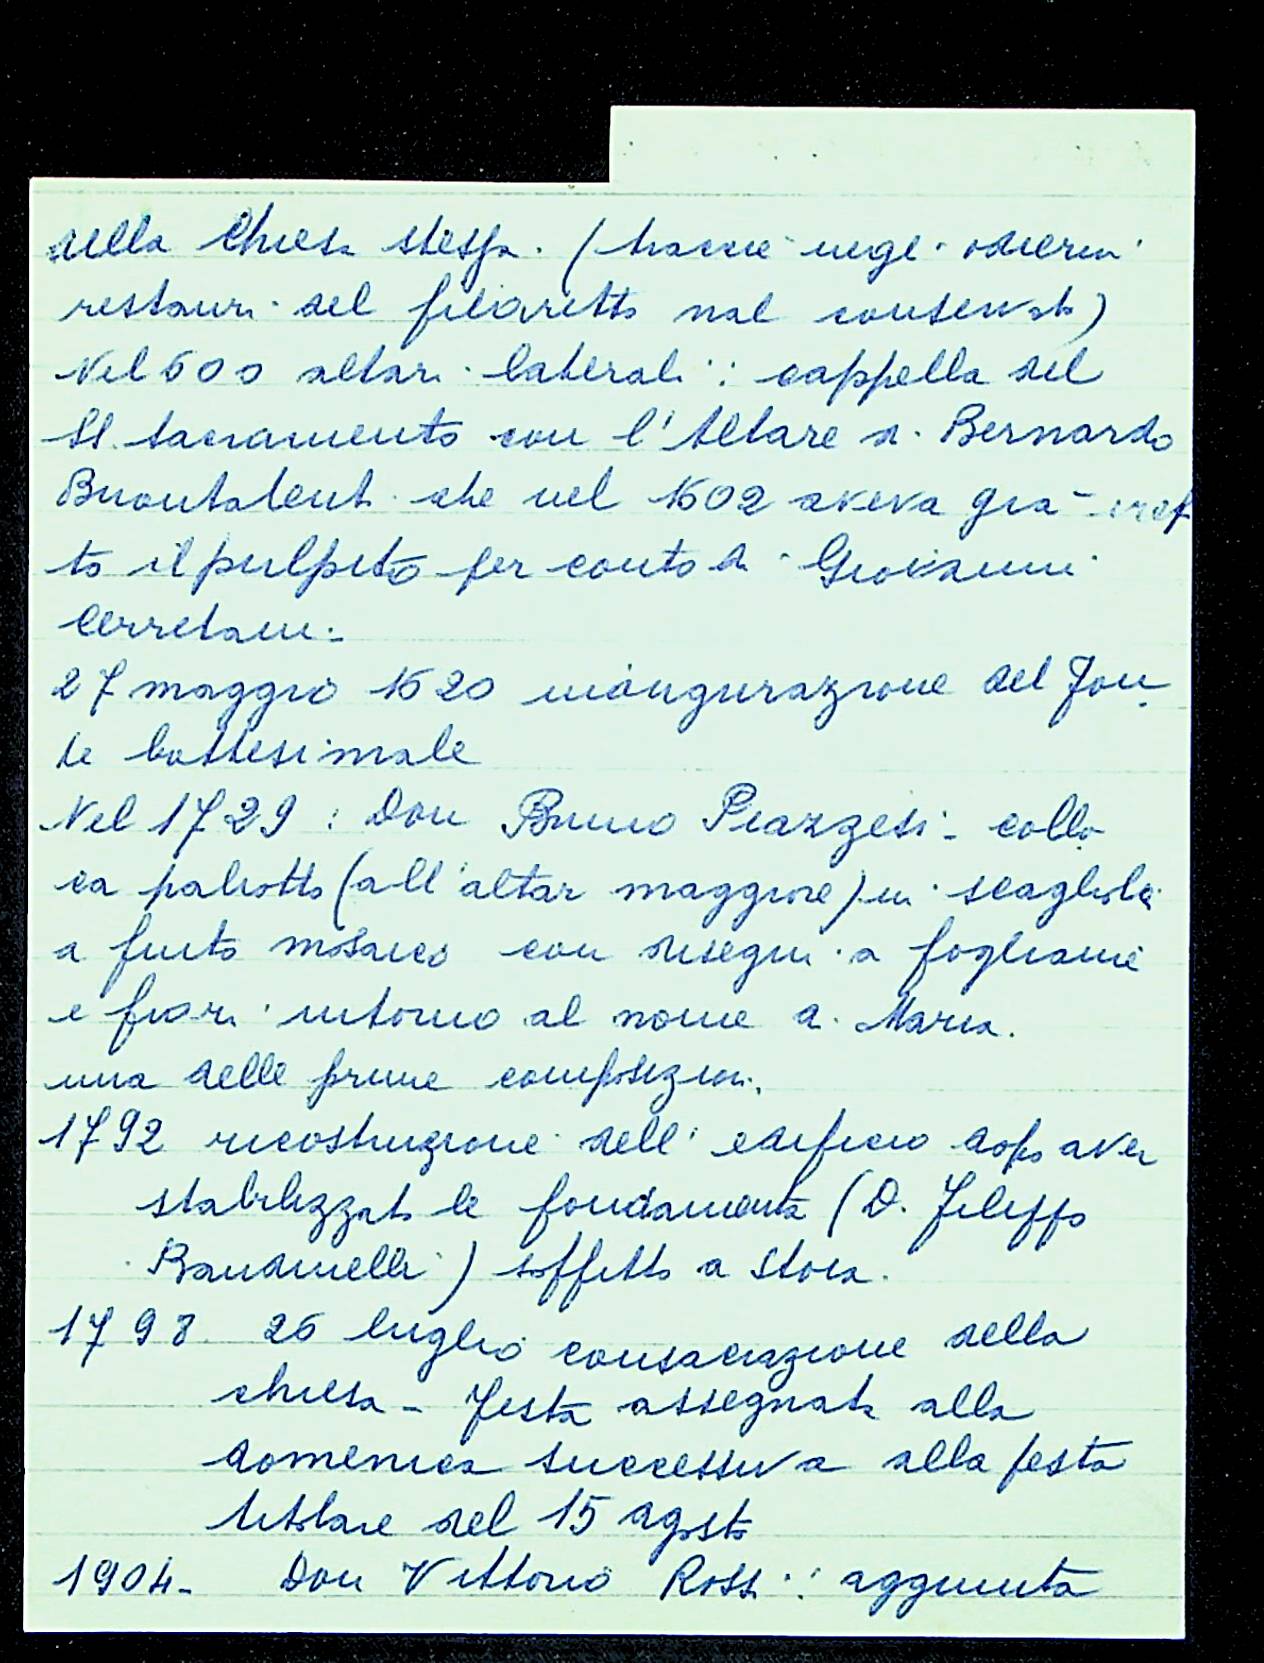 della Chiesa stessa. (traccie negli odierni
restauri del filaretto mal conservato)
Nel 600 altari laterali: cappella del
SS. Sacramento con l'Altare di Bernardo
Buontalenti che nel 1602 aveva già eret
to il pulpito per conto di Giovanni
Cerretani.
27 maggio 1620 inaugurazione del Fon
te battesimale
Nel 1729: Don Bruno Piazzesi - collo
ca paliotto (all'altar maggiore) in scagliola
a finto mosaico con disegni a fogliame
e fiori intorno al nome di Maria.
una delle prime composizioni.
1792 ricostruzione dell'edificio dopo aver
stabilizzato le fondamenta (D. Filippo
Bandinelli) soffitto a stoia.
1798. 26 luglio consacrazione della
chiesa - Festa assegnata alla
domenica successiva alla festa
titolare del 15 agosto
1904 - Don Vittorio Rossi: aggiunta